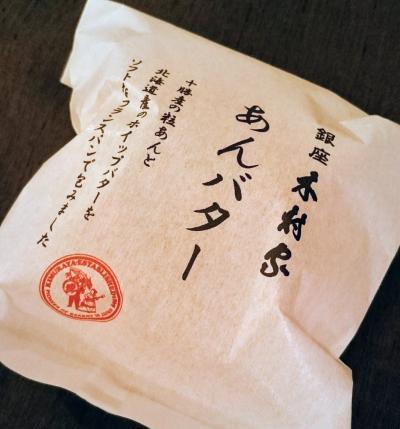 銀座 木村家
あんバター
十勝産の粒あんと
北海道産のホイップバターを
ソフトなフランスパンで包みました